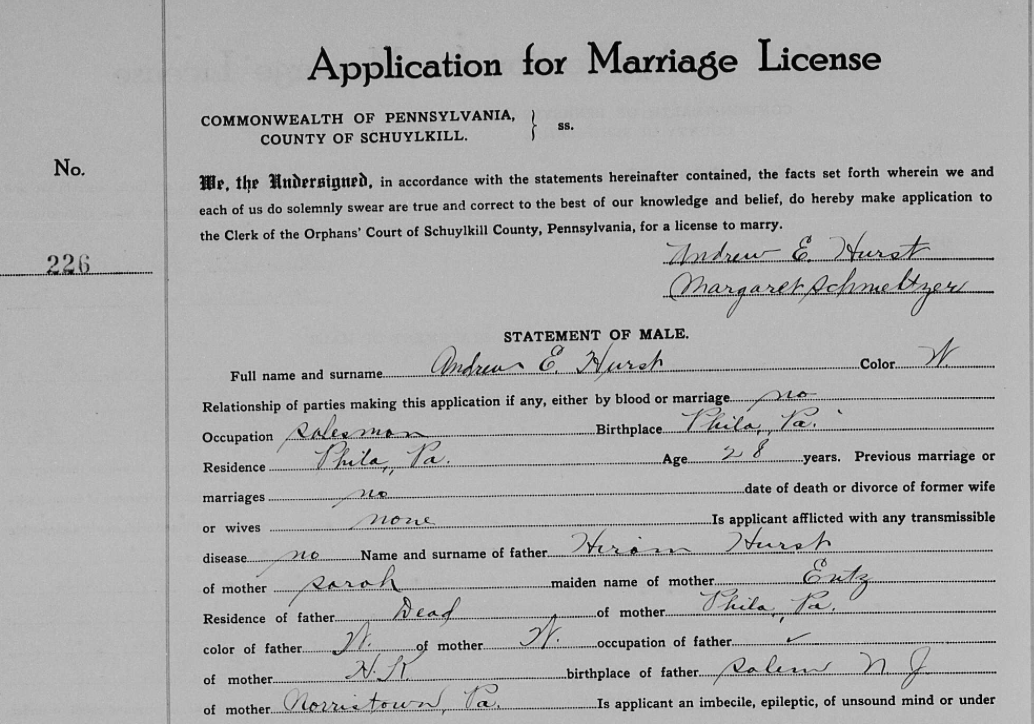 Application for Marriage License
COMMONWEALTH OF PENNSYLVANIA,
COUNTY OF SCHUYLKILL. } ss.
No.
We, the Undersigned, in accordance with the statements hereinafter contained, the facts set forth wherein we and
each of us do solemnly swear are true and correct to the best of our knowledge and belief, do hereby make application to
the Clerk of the Orphans' Court of Schuylkill County, Pennsylvania, for a license to marry.
226
Andrew E. Hurst
Margaret Schmeltzer
STATEMENT OF MALE.
Full name and surname Andrew E. Hurst Color W.
Relationship of parties making this application if any, either by blood or marriage no
Occupation salesman Birthplace Phila., Pa.
Residence Phila., Pa. Age 28 years. Previous marriage or
marriages no date of death or divorce of former wife
or wives none Is applicant afflicted with any transmissible
disease no Name and surname of father Hiram Hurst
of mother Sarah maiden name of mother Entz
Residence of father Dead of mother Phila., Pa.
color of father W. of mother W. occupation of father ✓
of mother H.K. birthplace of father Salem N J
of mother Norristown, Pa. Is applicant an imbecile, epileptic, of unsound mind or under